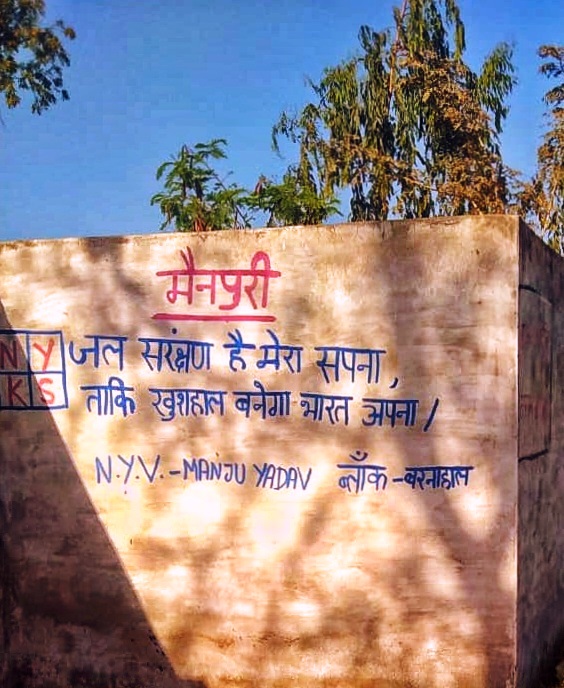 मैनपुरी
NY
KS
जल सरंक्षण है मेरा सपना,
ताकि खुशहाल बनेगा भारत अपना /
N.Y.V. - MANJU YADAV ब्लॉँक - बरनाहाल